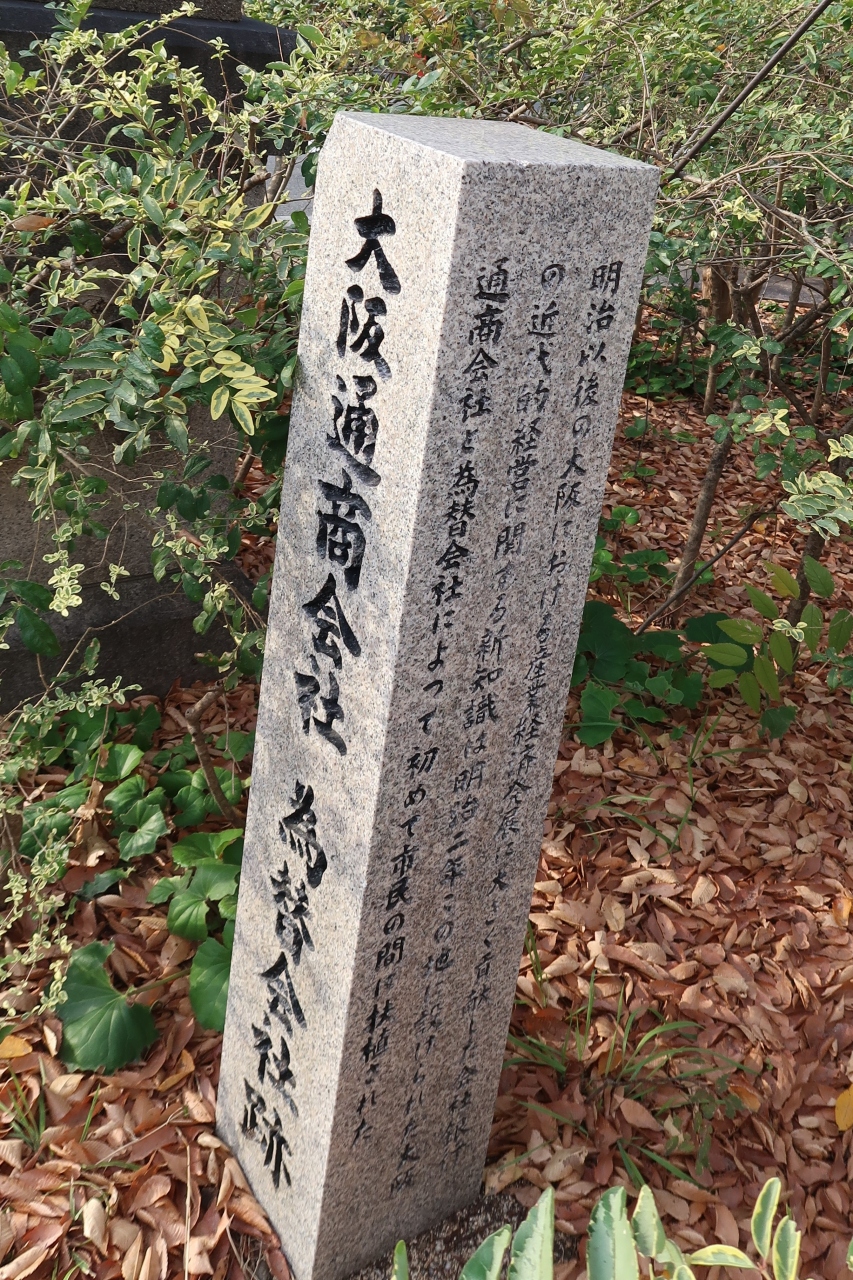 大阪通商会社 為替会社跡
明治以後の大阪における産業経済発展に大きく貢献した会社銀行
の近代的経営に関する新知識は明治二年この地に設けられた大阪
通商会社と為替会社によって初めて市民の間に扶植された